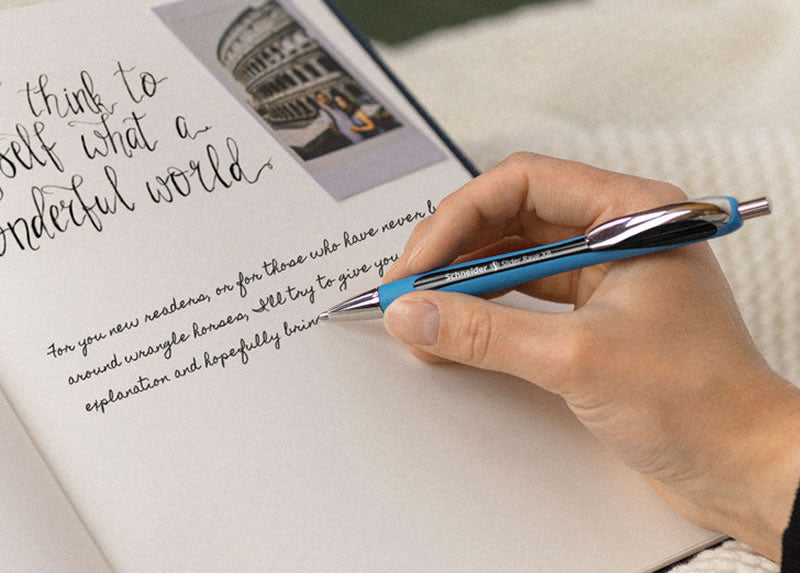 think to
self what a
wonderful world
For you new readers, or for those who have never b
around wrangle horses, I'll try to give you
explanation and hopefully brin
Schneider Slider Rave XB